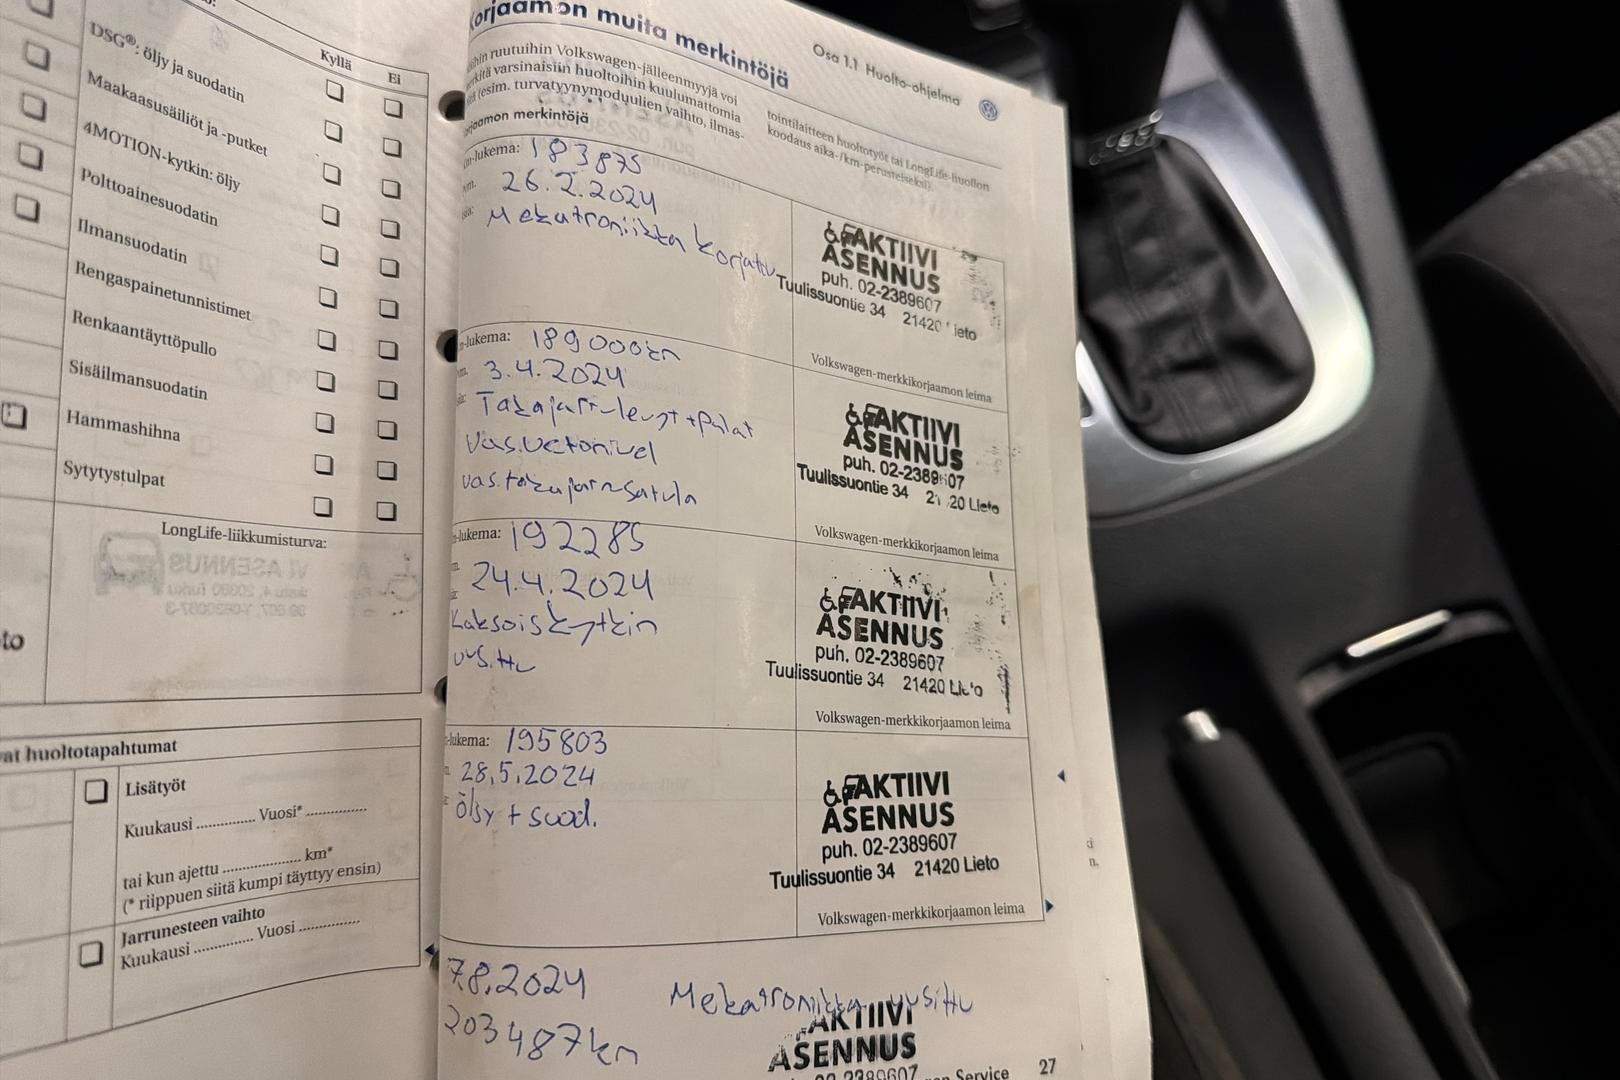 Kyllä Ei
DSG®: öljy ja suodatin
Maakaasusäiliöt ja -putket
4MOTION-kytkin: öljy
Polttoainesuodatin
Ilmansuodatin
Rengaspainetunnistimet
Renkaantäyttöpullo
Sisäilmansuodatin
Hammashihna
Sytytystulpat
LongLife-liikkumisturva:
huoltotapahtumat
Lisätyöt
Kuukausi .............. Vuosi* ..............
tai kun ajettu .................. km*
(* riippuen siitä kumpi täyttyy ensin)
Jarrunesteen vaihto
Kuukausi .............. Vuosi ..............
Osa 1.1 Huolto-ohjelma
muita merkintöjä
ruutuihin Volkswagen-jälleenmyyjä voi
varsinaisiin huoltoihin kuulumattomia
(esim. turvatyynymoduulien vaihto, ilmas-
tointilaitteen huoltotyöt tai LongLife-huollon
koodaus aika-/km-perusteiseksi).
merkintöjä
-lukema: 183875
26.2.2024
Mekatroniikka korjattu
AKTIIVI
ASENNUS
puh. 02-2389607
Tuulissuontie 34 21420
Volkswagen-merkkikorjaamon leima
-lukema: 189000km
3.4.2024
Takajarr-levyt+palat
vas.vetonivel
vas.takajarrusatula
AKTIIVI
ASENNUS
puh. 02-2389607
Tuulissuontie 34 Lieto
Volkswagen-merkkikorjaamon leima
-lukema: 192285
24.4.2024
Kaksoiskytkin
uusittu
AKTIIVI
ASENNUS
puh. 02-2389607
Tuulissuontie 34 21420 Lieto
Volkswagen-merkkikorjaamon leima
-lukema: 195803
28.5.2024
öljy + suod.
AKTIIVI
ASENNUS
puh. 02-2389607
Tuulissuontie 34 21420 Lieto
Volkswagen-merkkikorjaamon leima
7.8.2024 Mekatroniikka uusittu
203487km
AKTIIVI
ASENNUS
02-2389607
Service 27